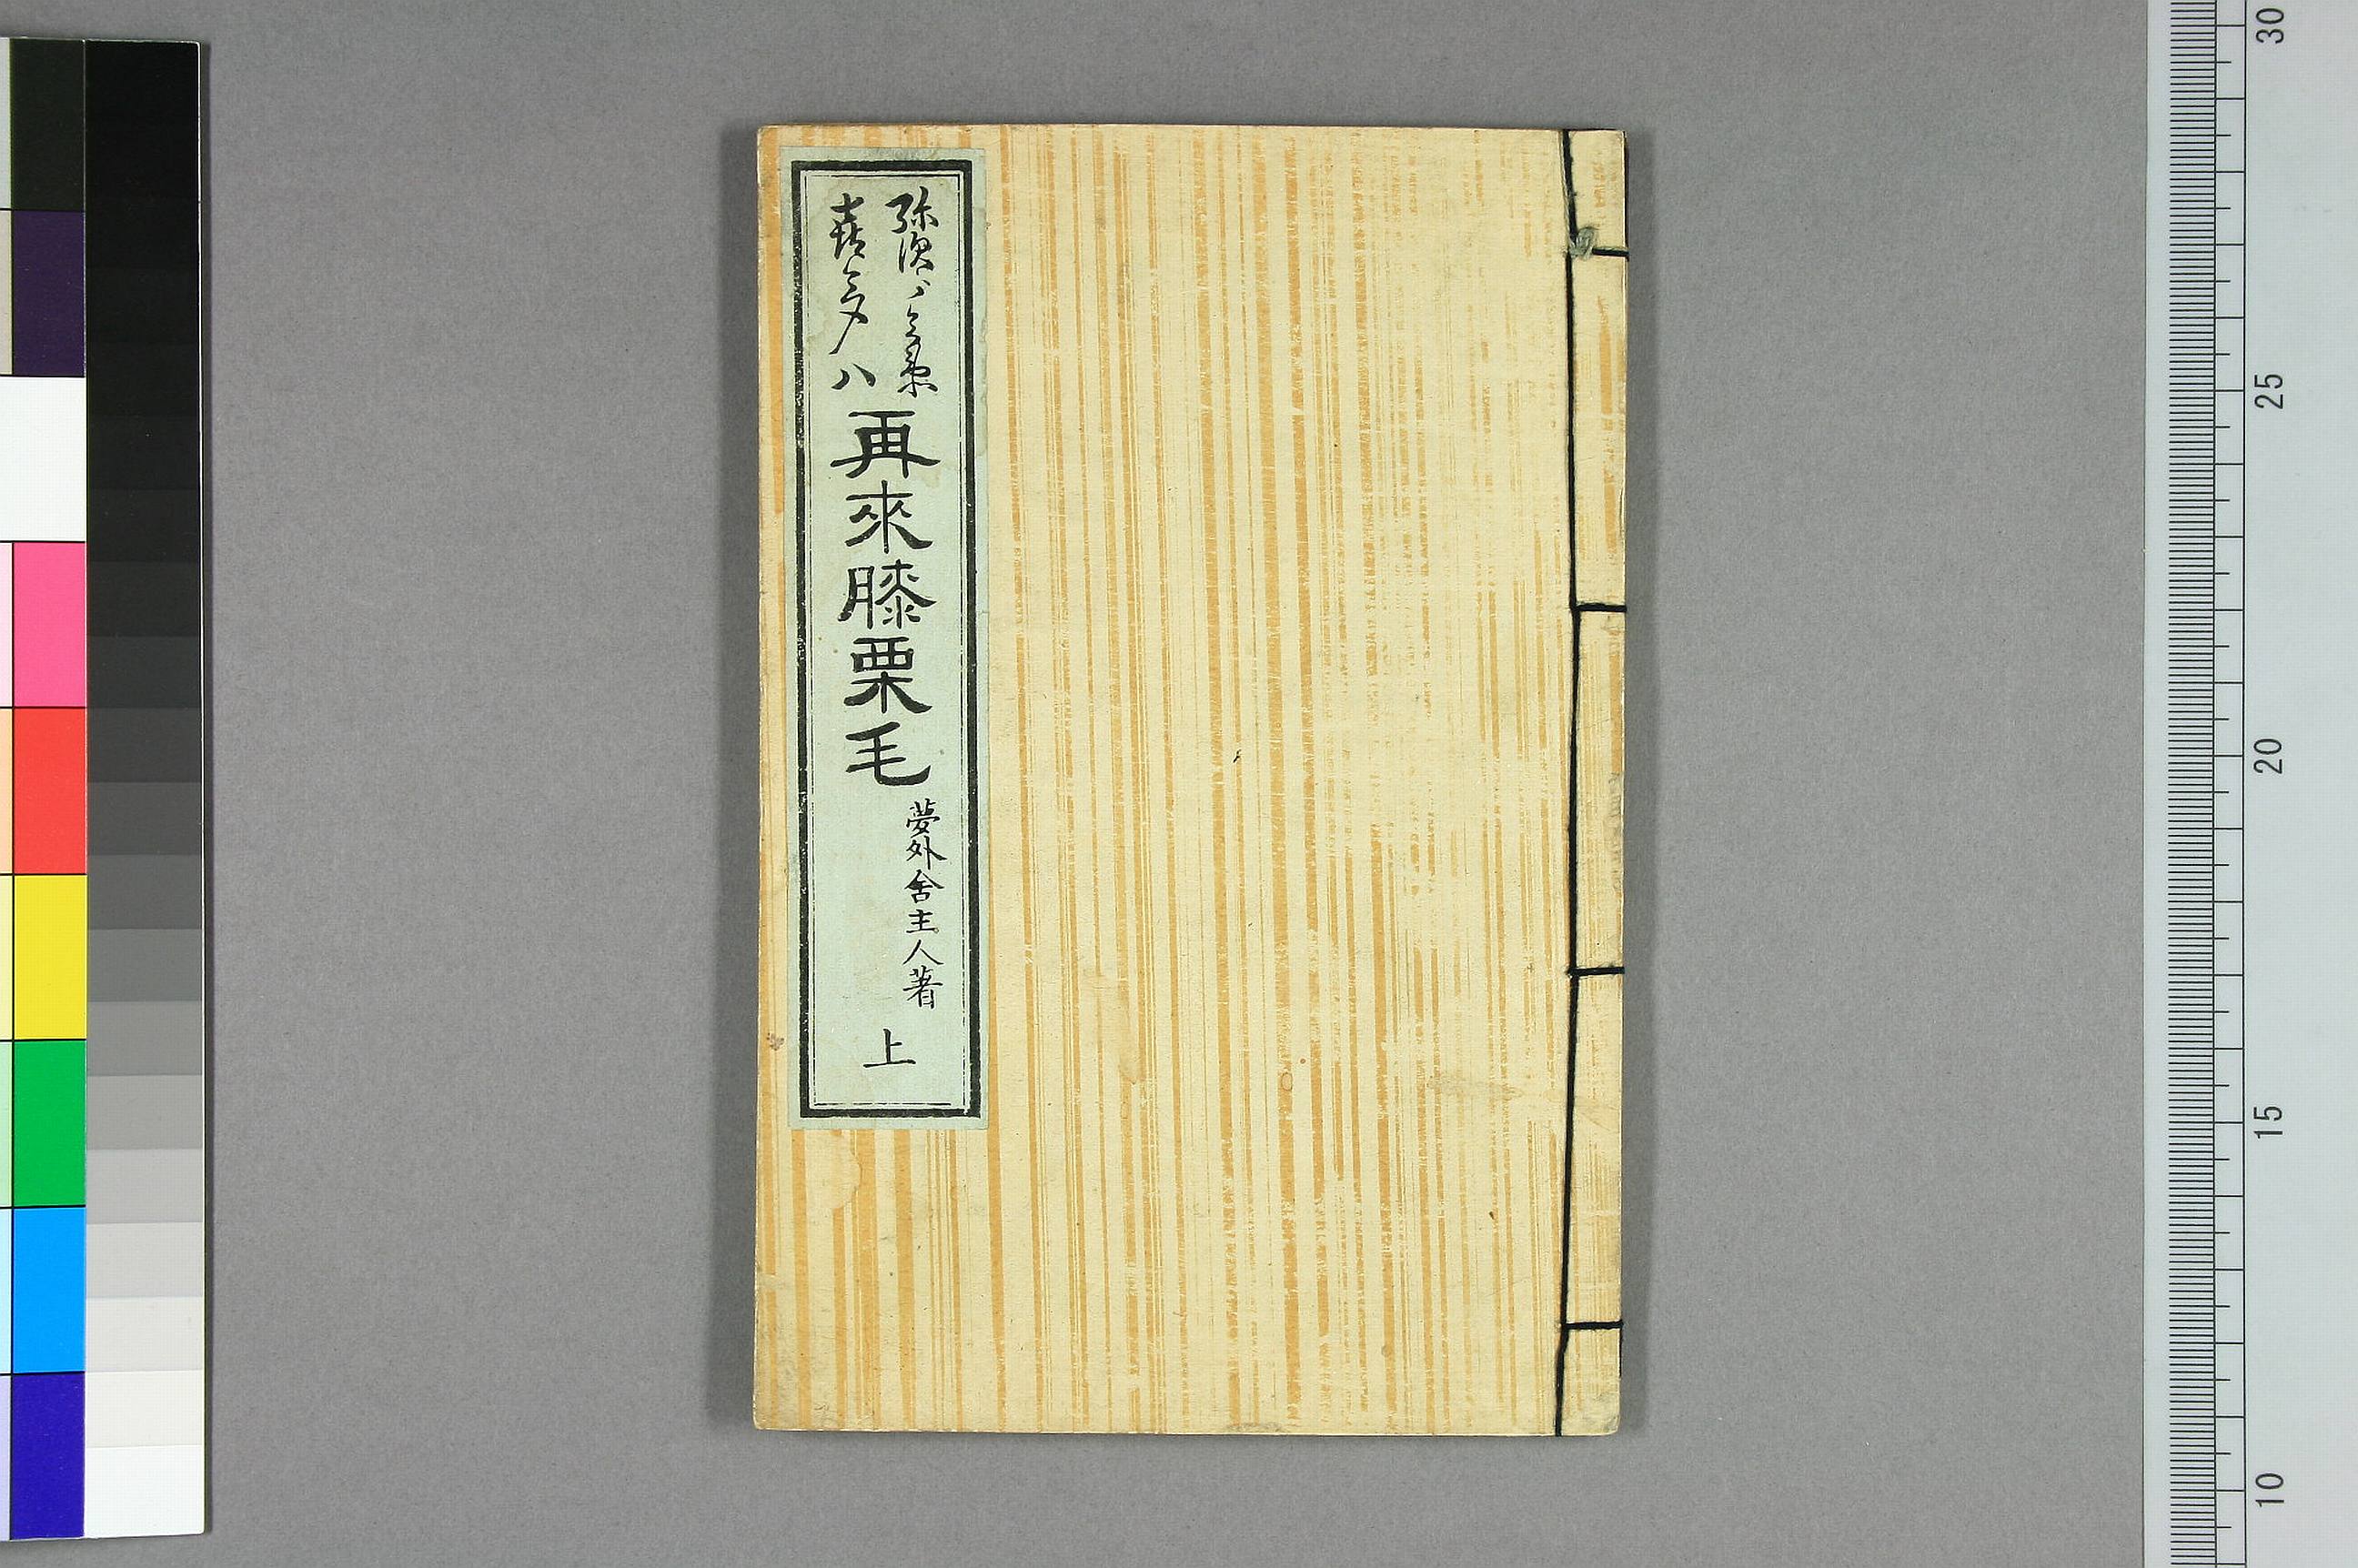 弥次郎兵衛
喜多八
再來膝栗毛
夢外舍主人著
上
30
25
20
15
10